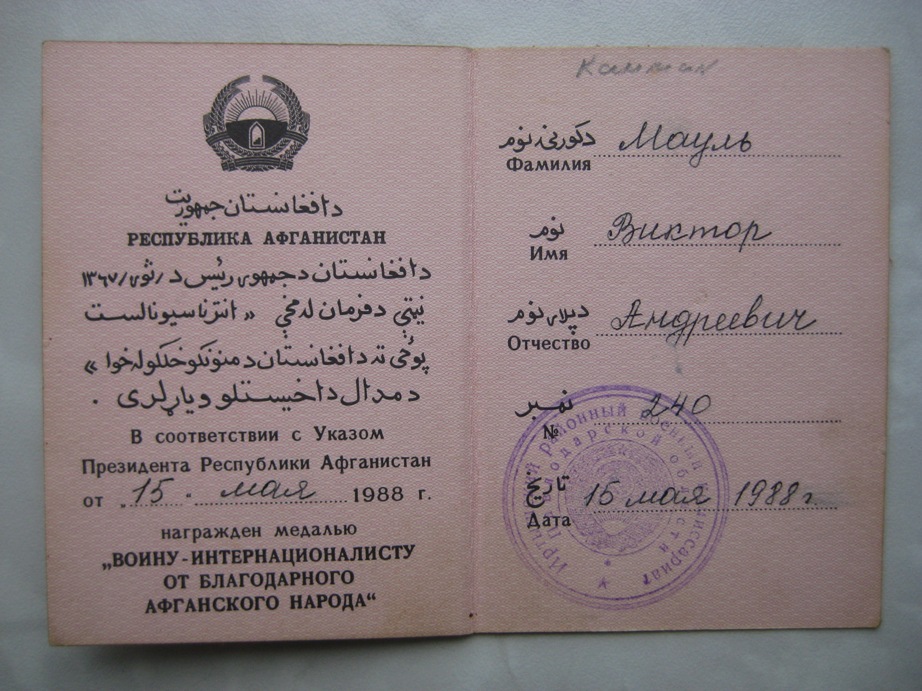 د افغانستان جمهوریت
РЕСПУБЛИКА АФГАНИСТАН
د افغانستان د جمهوری رئیس د / ثور / ۱۳۶۷
نیټې د فرمان له مخې « انترناسیونالست
پوځی ته د افغانستان د منونکو خلکو له خوا »
د مډال د اخیستلو ویاړ لری .
В соответствии с Указом
Президента Республики Афганистан
от „15„ мая 1988 г.
награжден медалью
„ВОИНУ-ИНТЕРНАЦИОНАЛИСТУ
ОТ БЛАГОДАРНОГО
АФГАНСКОГО НАРОДА“
د کورنۍ نوم
Фамилия Мауль
نوم
Имя Виктор
د پلار نوم
Отчество Андреевич
نمبر
№ 240
تاریخ
Дата 15 мая 1988 г
районный военный комиссариат
области